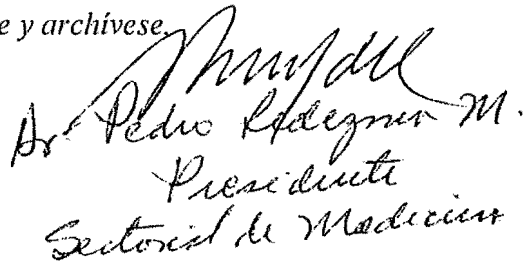 e y archívese.
Dr. Pedro Ledezma M.
Presidente
Sectorial de Medicina